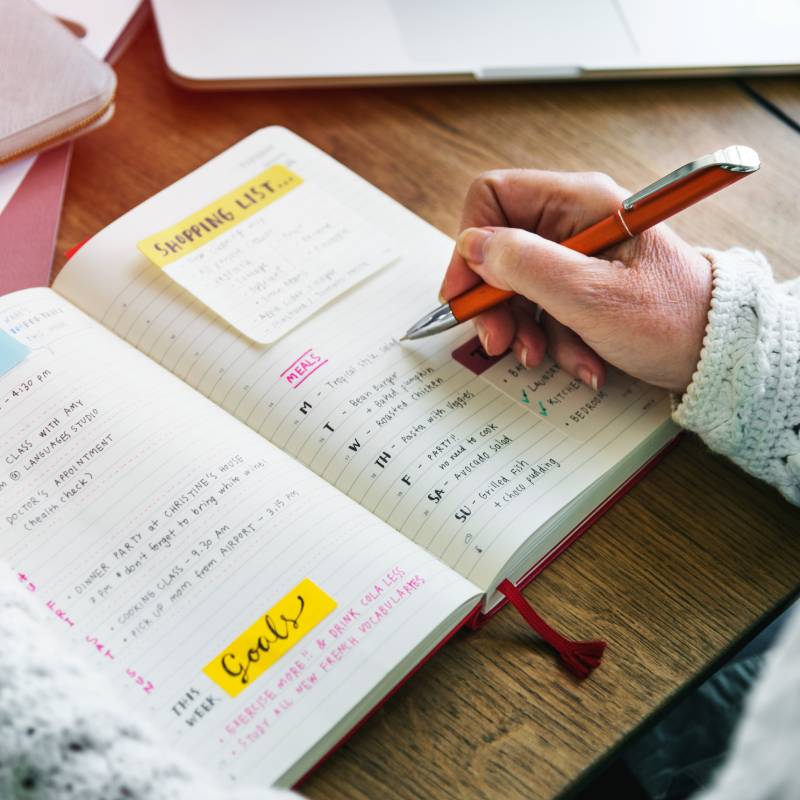 - 4:30 PM
CLASS WITH AMY
@ LANGUAGES STUDIO
DOCTOR'S APPOINTMENT
(health check)
FRI
• DINNER PARTY at CHRISTINE'S HOUSE
8 PM * don't forget to bring white wine!
SAT
• COOKING CLASS - 9.30 AM
• PICK UP mom from AIRPORT - 3.15 PM
SUN
THIS WEEK
Goals
• EXERCISE MORE!! & DRINK COLA LESS
• STUDY ALL NEW FRENCH VOCABULARIES
SHOPPING LIST...
MEALS
M - Tropical style salad
T - Bean Burger
+ Baked pumpkin
W - Roasted chicken
TH - Pasta with veggies
F - PARTY!!
no need to cook
SA - Avocado salad
SU - Grilled Fish
+ choco pudding
T
LAUNDRY
KITCHEN
• BEDROOM